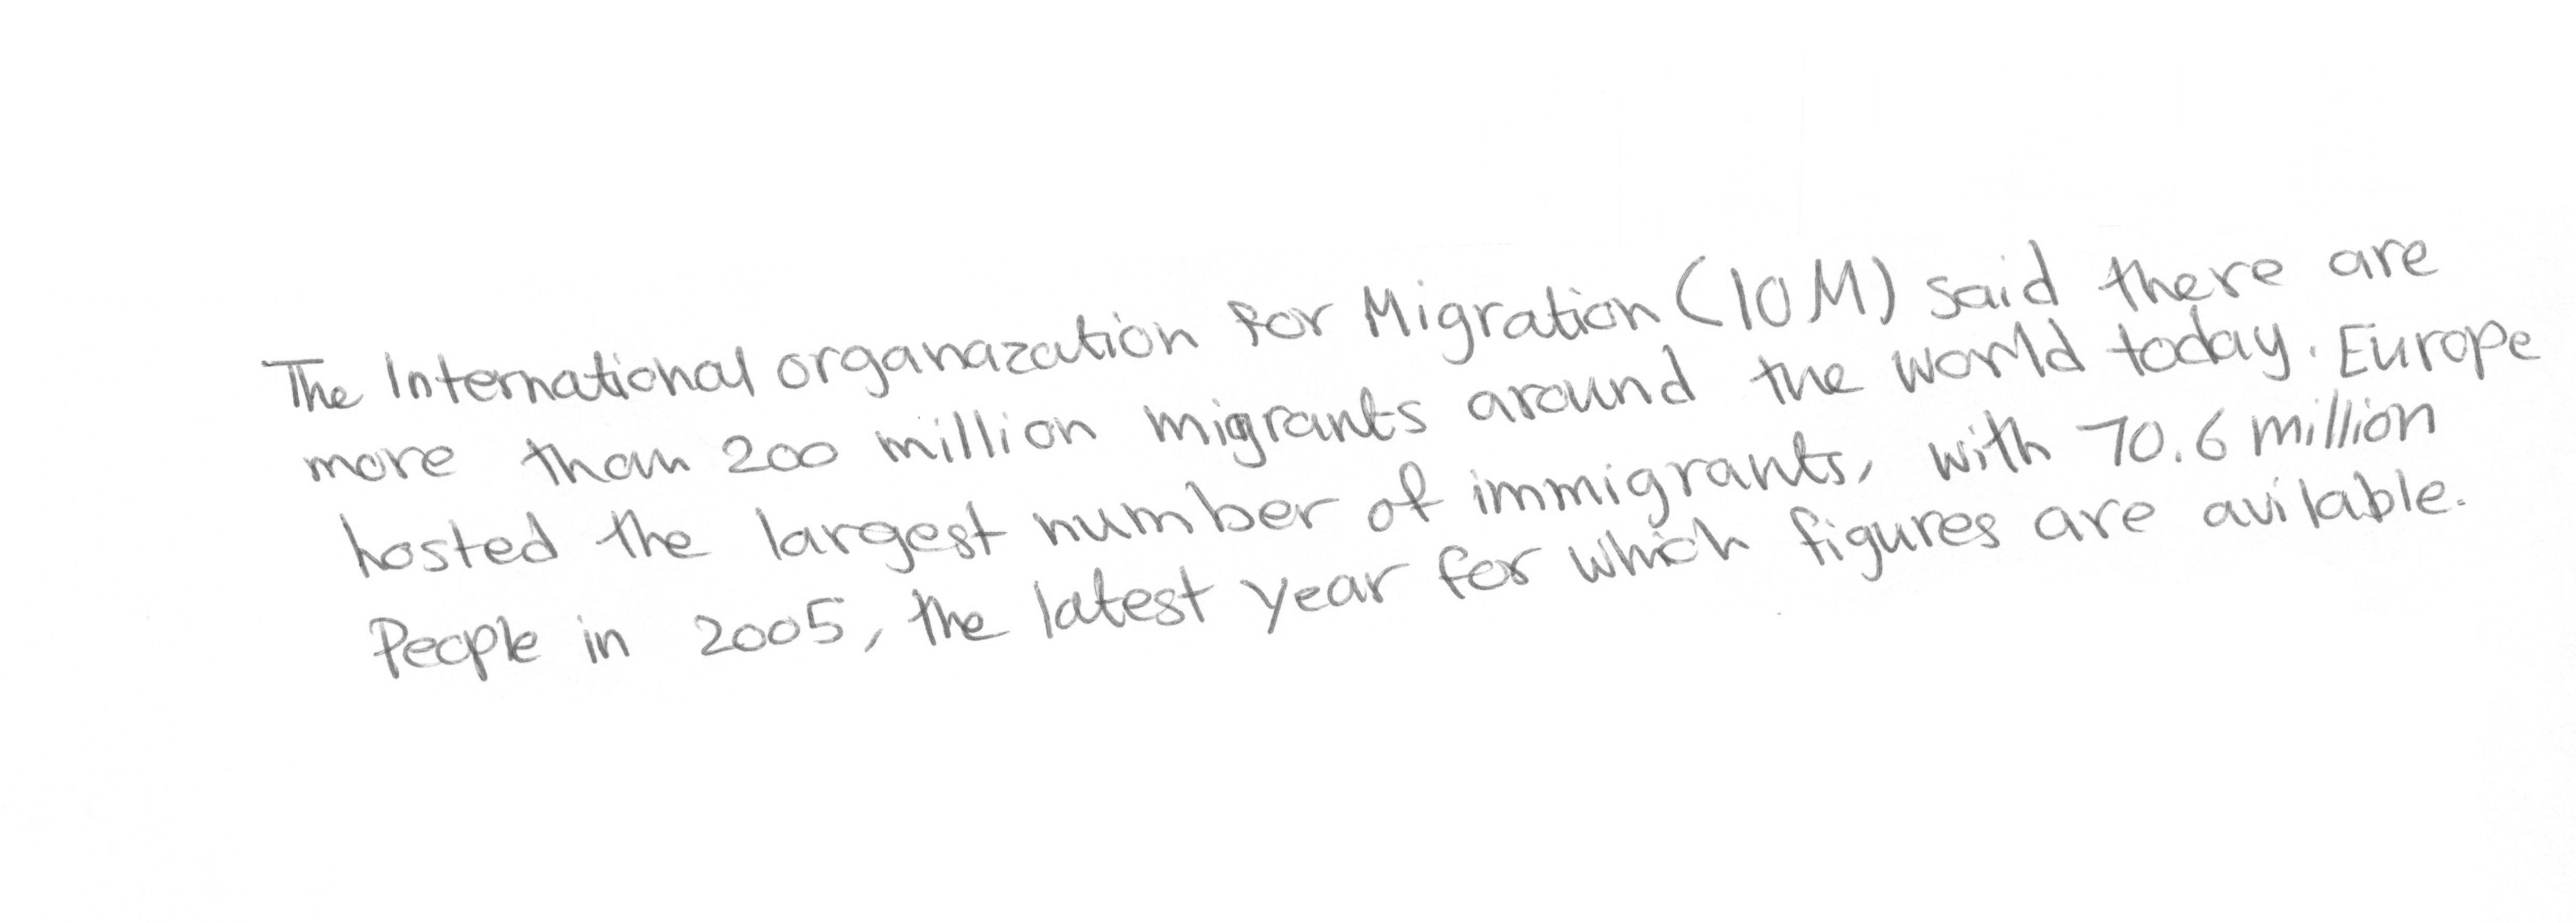 The International organazation for Migration (IOM) said there are
more than 200 million migrants around the world today. Europe
hosted the largest number of immigrants, with 70.6 million
People in 2005, the latest year for which figures are avilable.